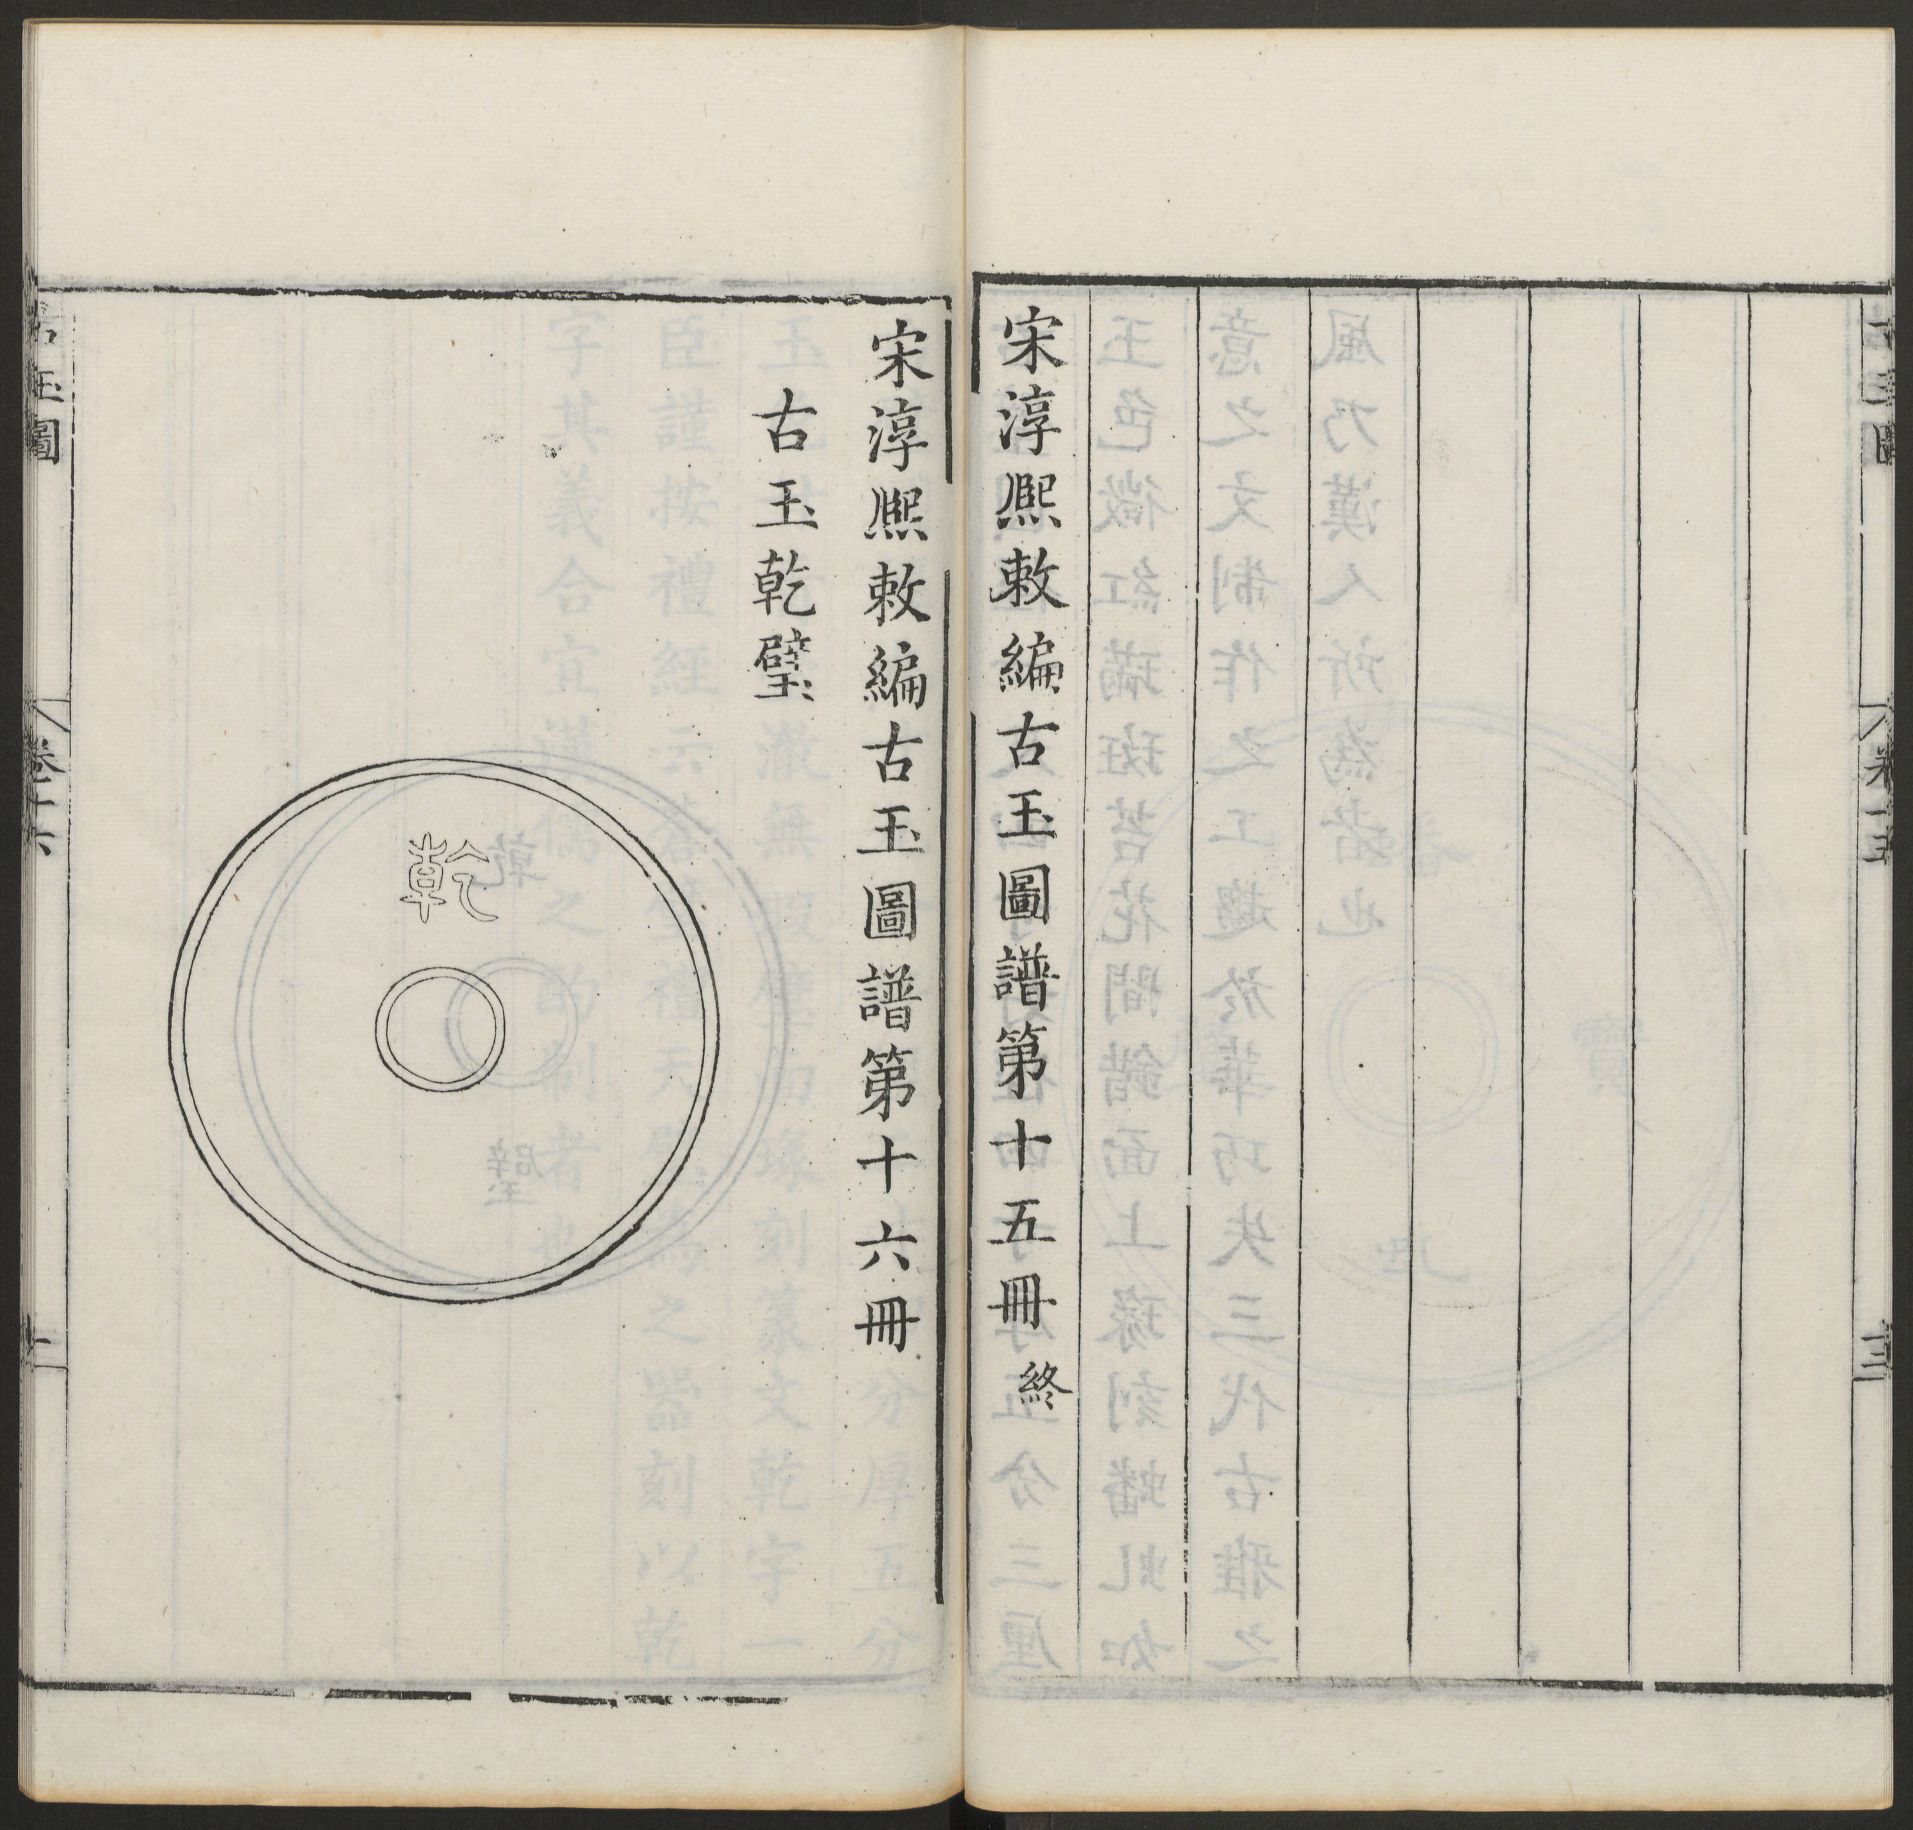 宋淳熙敕編古玉圖譜第十五冊 終
宋淳熙敕編古玉圖譜第十六冊
古玉乾璧
乾
古玉圖
卷十六